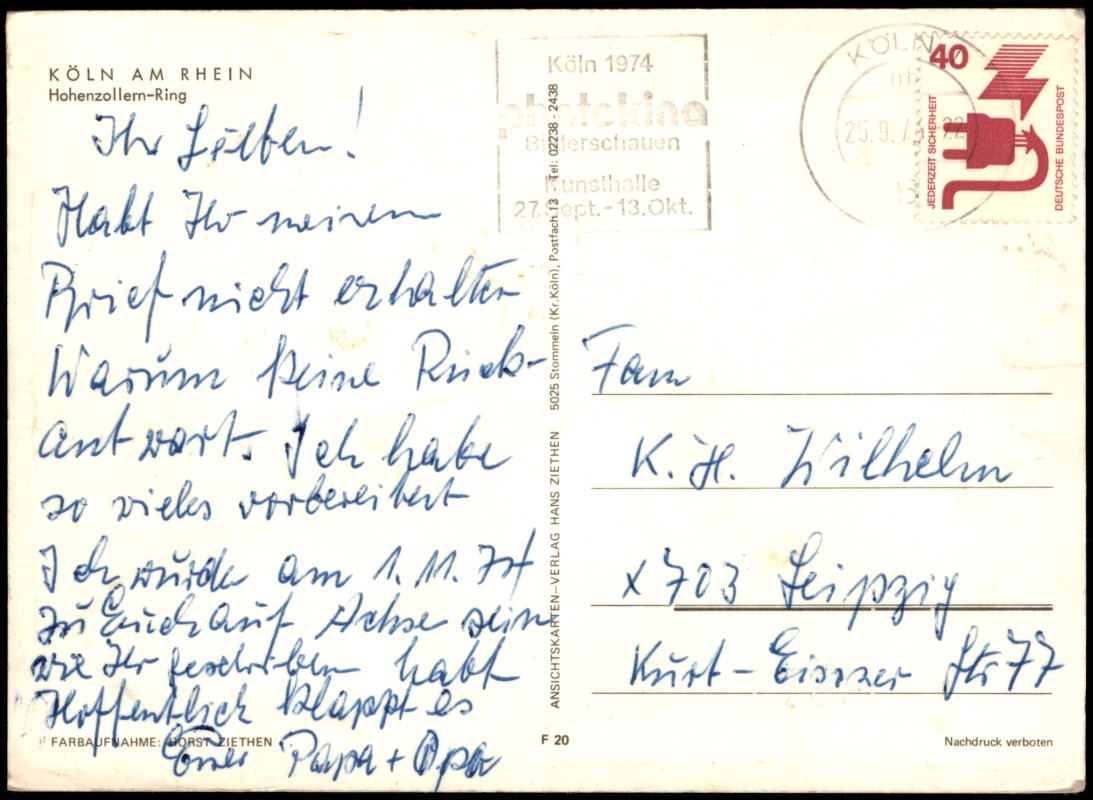 KÖLN AM RHEIN
Hohenzollern-Ring
Ihr Lieben!
Habt Ihr meinen
Brief nicht erhalten
Warum keine Rück-
antwort. Ich habe
so vieles vorbereitet
Ich würde am 1.11.74
zu Euch auf Achse sein
wie Ihr geschrieben habt
Hoffentlich klappt es
Euer Papa + Opa
FARBAUFNAHME: HORST ZIETHEN
Köln 1974
photokina
Bilderschauen
Kunsthalle
27. Sept. - 13. Okt.
KÖLN
25.9.7
22
40
JEDERZEIT SICHERHEIT
DEUTSCHE BUNDESPOST
ANSICHTSKARTEN-VERLAG HANS ZIETHEN 5025 Stommeln (Kr. Köln), Postfach 13 Tel: 02238 - 2438
Fam
K. H. Wilhelm
x 703 Leipzig
Kurt-Eisner Str 77
F 20
Nachdruck verboten